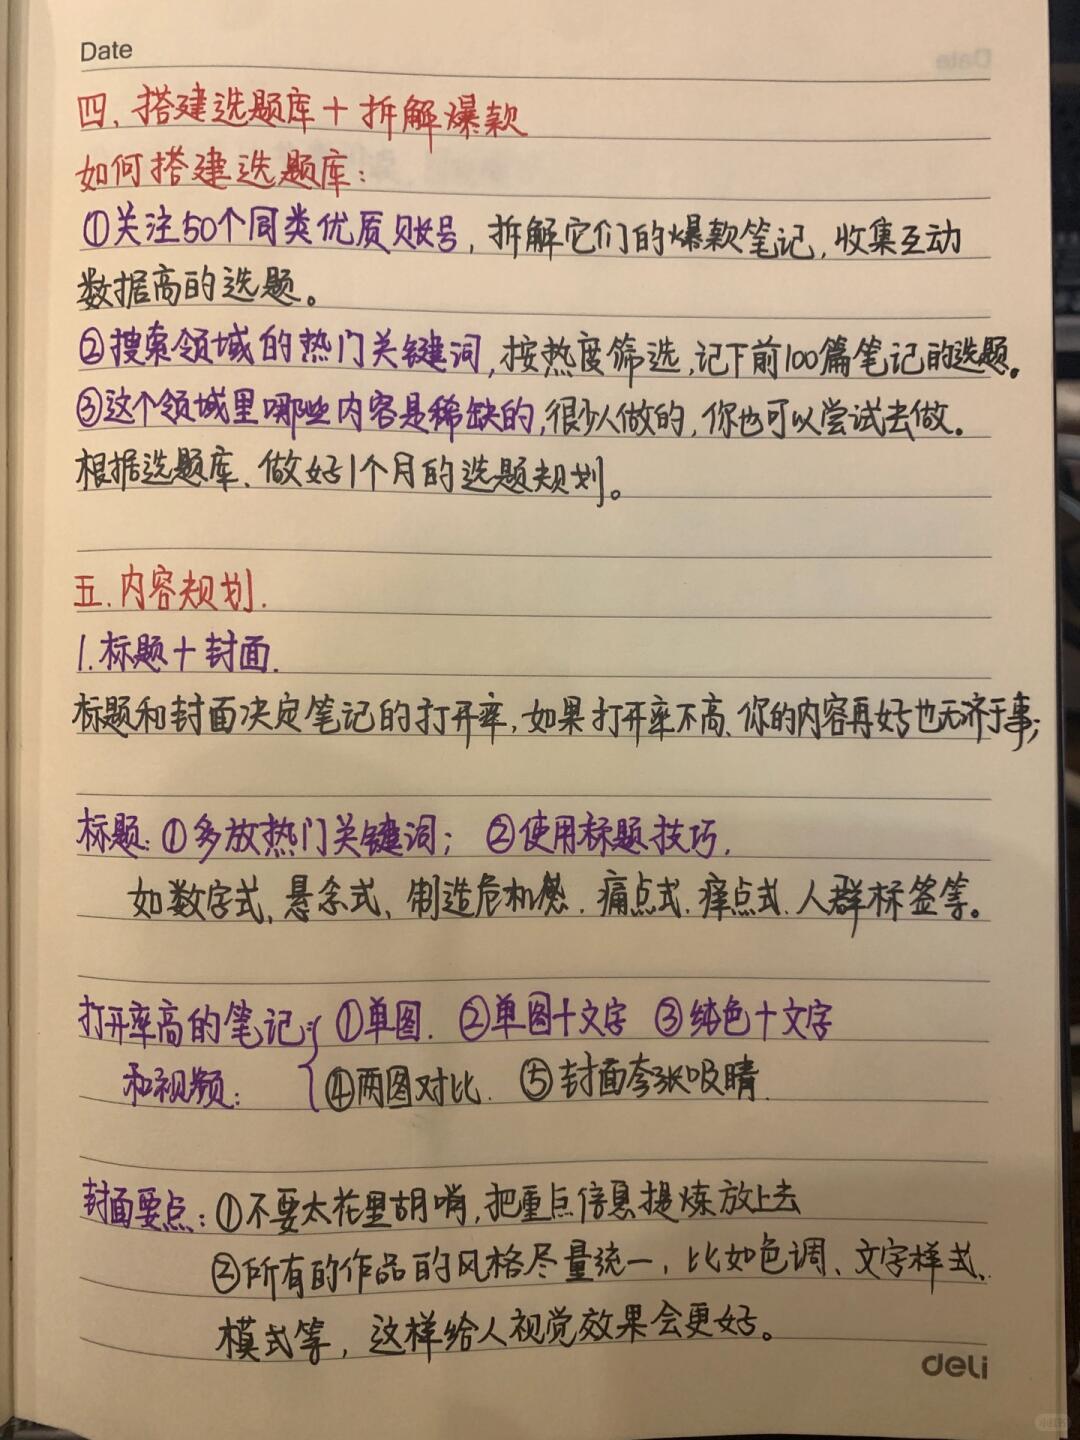 Date
四、搭建选题库+拆解爆款
如何搭建选题库:
①关注50个同类优质账号,拆解它们的爆款笔记,收集互动
数据高的选题。
②搜索领域的热门关键词,按热度筛选,记下前100篇笔记的选题。
③这个领域里哪些内容是稀缺的,很少人做的,你也可以尝试去做。
根据选题库、做好1个月的选题规划。
五.内容规划.
1.标题+封面.
标题和封面决定笔记的打开率,如果打开率不高、你的内容再好也无济于事;
标题:①多放热门关键词; ②使用标题技巧.
如数字式、悬念式、制造危机感、痛点式、痒点式、人群标签等。
打开率高的笔记 ①单图. ②单图+文字 ③纯色+文字
和视频: ④两图对比. ⑤封面夸张吸睛.
封面要点:①不要太花里胡哨,把重点信息提炼放上去
②所有的作品的风格尽量统一,比如色调、文字样式、
模式等,这样给人视觉效果会更好。
deli
小红书